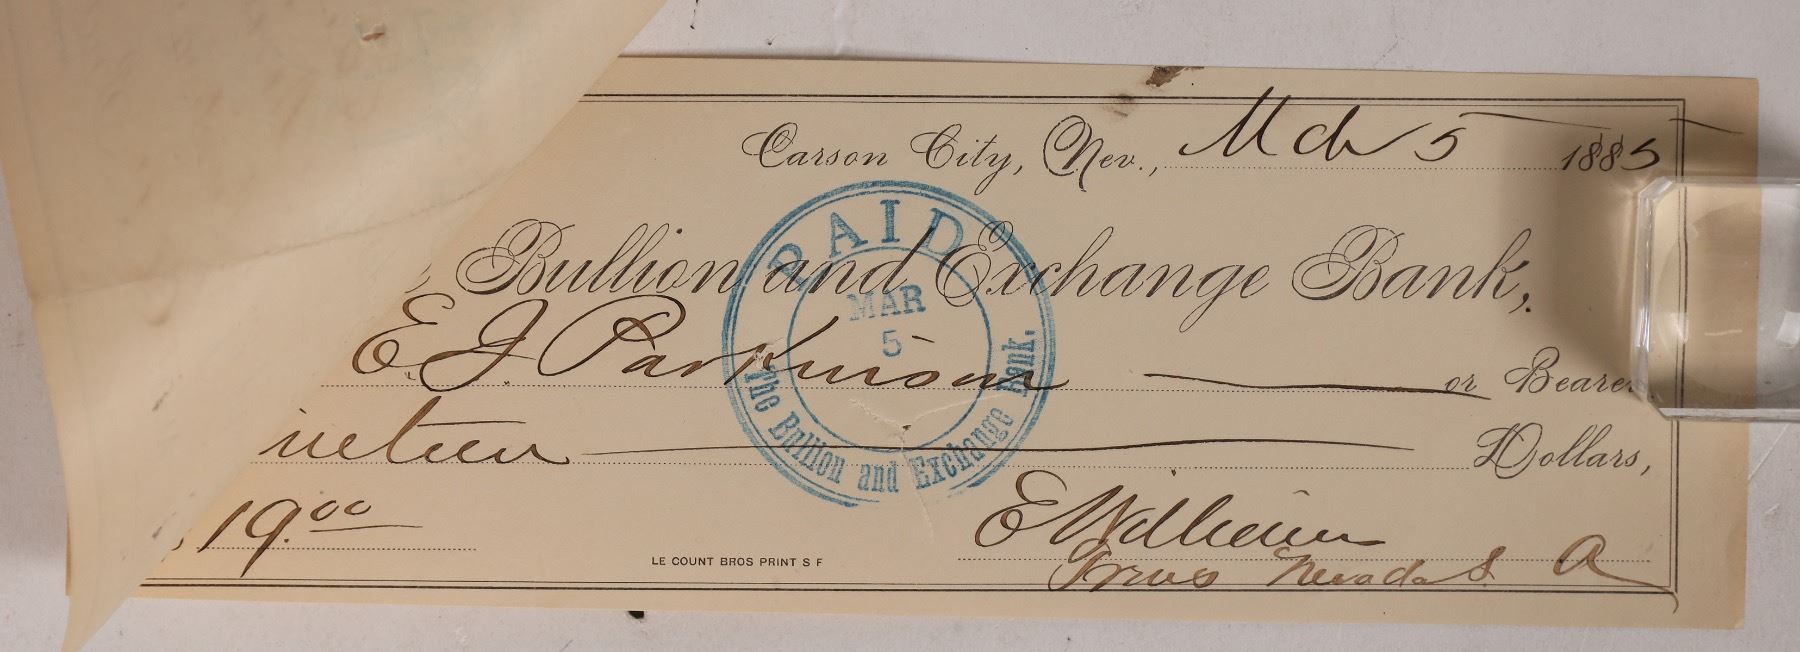 Carson City, Nev., Mch 5 1885
Bullion and Exchange Bank,
E. J. Parkinson or Bearer
ineteen Dollars,
19.00
PAID
MAR
5
The Bullion and Exchange Bank.
LE COUNT BROS PRINT S F
Treas Nevada S A